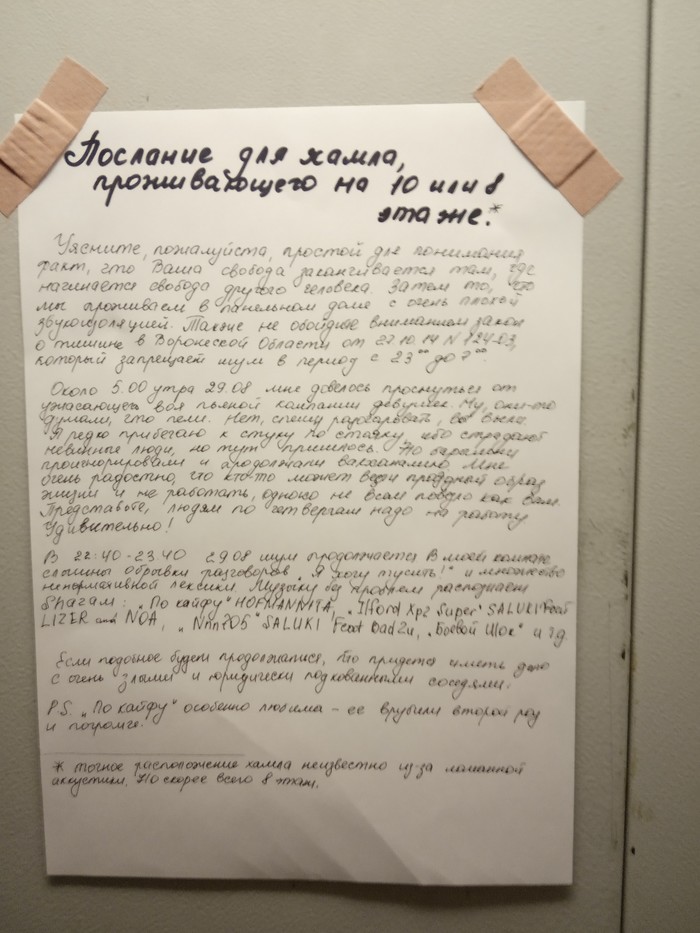 Послание для хамла,
проживающего на 10 или 8
этаже.*
Уясните, пожалуйста, простой для понимания
факт, что Ваша свобода заканчивается там, где
начинается свобода другого человека. Затем то, что
мы проживаем в панельном доме с очень плохой
звукоизоляцией. Также не обойдите вниманием закон
о тишине в Воронеской Области от 27.10.14 N 124-03,
который запрещает шум в период с 23⁰⁰ до 7⁰⁰.
Около 5.00 утра 29.08 мне довелось проснуться от
ужасающего воя пьяной компании девушек. Ну, они-то
думали, что пели. Нет, спешу разочаровать, Вы выли.
Я редко прибегаю к стуку по стояку, ибо страдают
невинные люди, но тут пришлось. Но
проигнорировали и продолжали вакханалию. Мне
очень радостно, что кто-то может вести праздный образ
жизни и не работать, однако не всем повезло как Вам.
Представьте, людям по четвергам надо на работу
Удивительно!
В 22:40-23 40 29 08 шум продолжается В моей комнате
слышны обрывки разговоров „Я хочу тусить!" и множество
ненормативной лексики. Музыку без проблем распознает
Shazam: „По кайфу" HOFMANNITA, „Ilford Xp2 Super" SALUKI Feat
LIZER and NOA, „Nnn705" SALUKI Feat Dadzu, „Боевой Шок" и т.д.
Если подобное будет продолжаться, то придется иметь дело
с очень злыми и юридически подкованными соседями.
P.S. „По кайфу" особенно любима - ее врубили второй раз
и погромче.
* точное расположение хамла неизвестно из-за ломанной
аккустики. Но скорее всего 8 этаж.